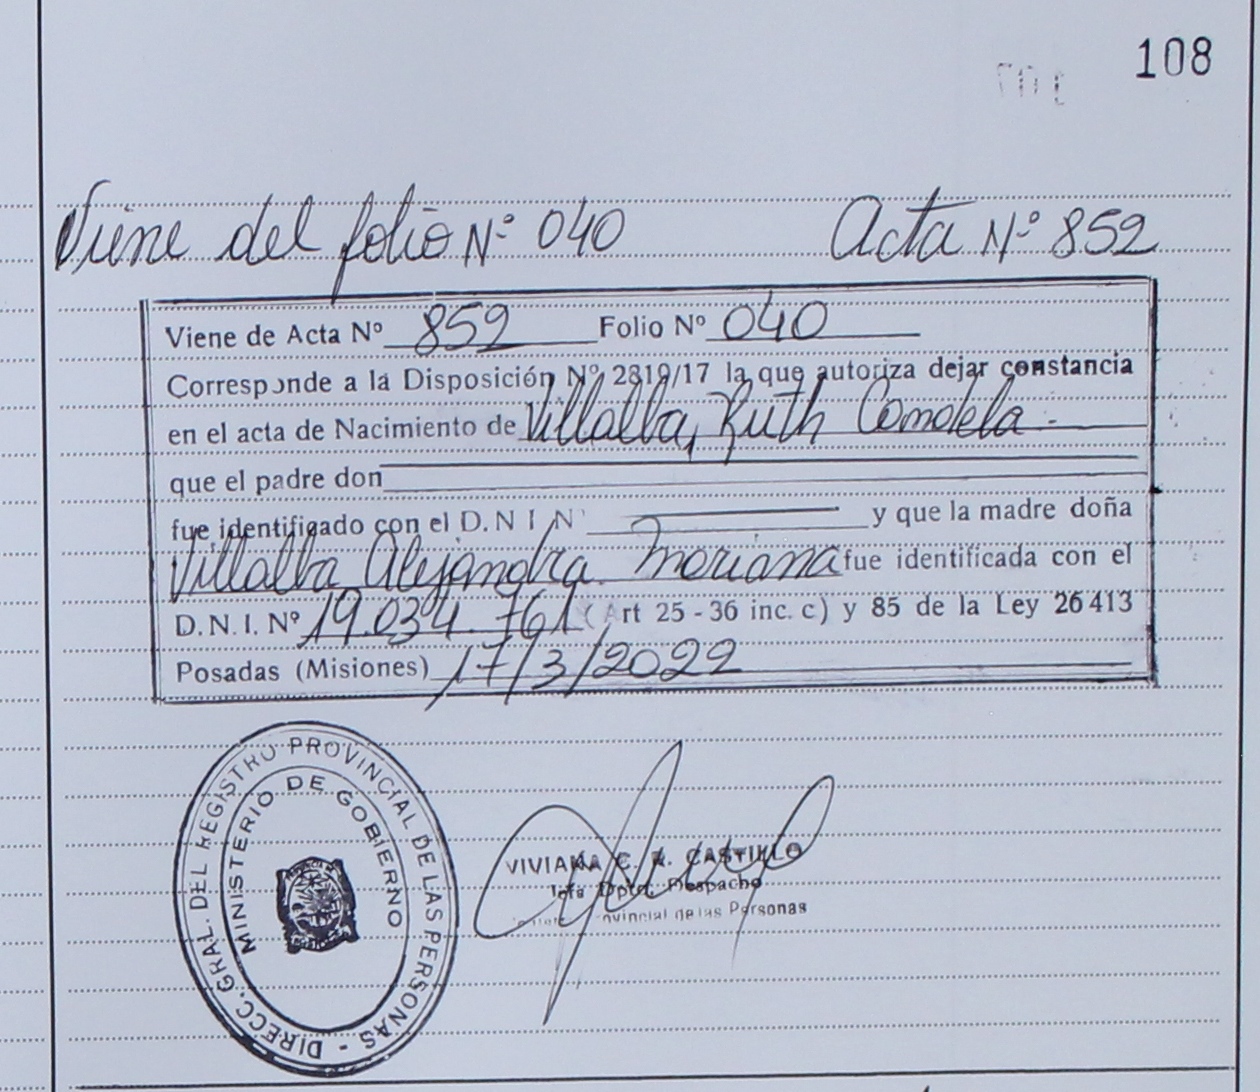 108
Viene del folio Nº 040 Acta Nº 852
Viene de Acta Nº 852 Folio Nº 040
Corresponde a la Disposición Nº 2819/17 la que autoriza dejar constancia
en el acta de Nacimiento de Villalba, Ruth Candela.-
que el padre don
fue identificado con el D.N I N y que la madre doña
Villalba Alejandra Mariana fue identificada con el
D.N.I. Nº 19.034.761 (Art 25-36 inc. c) y 85 de la Ley 26413
Posadas (Misiones) 17/3/2022
DIRECC. GRAL. DEL REGISTRO PROVINCIAL DE LAS PERSONAS -
MINISTERIO DE GOBIERNO
VIVIANA C. R. CASTILLO
Jefa Dpto. Despacho
de las Personas